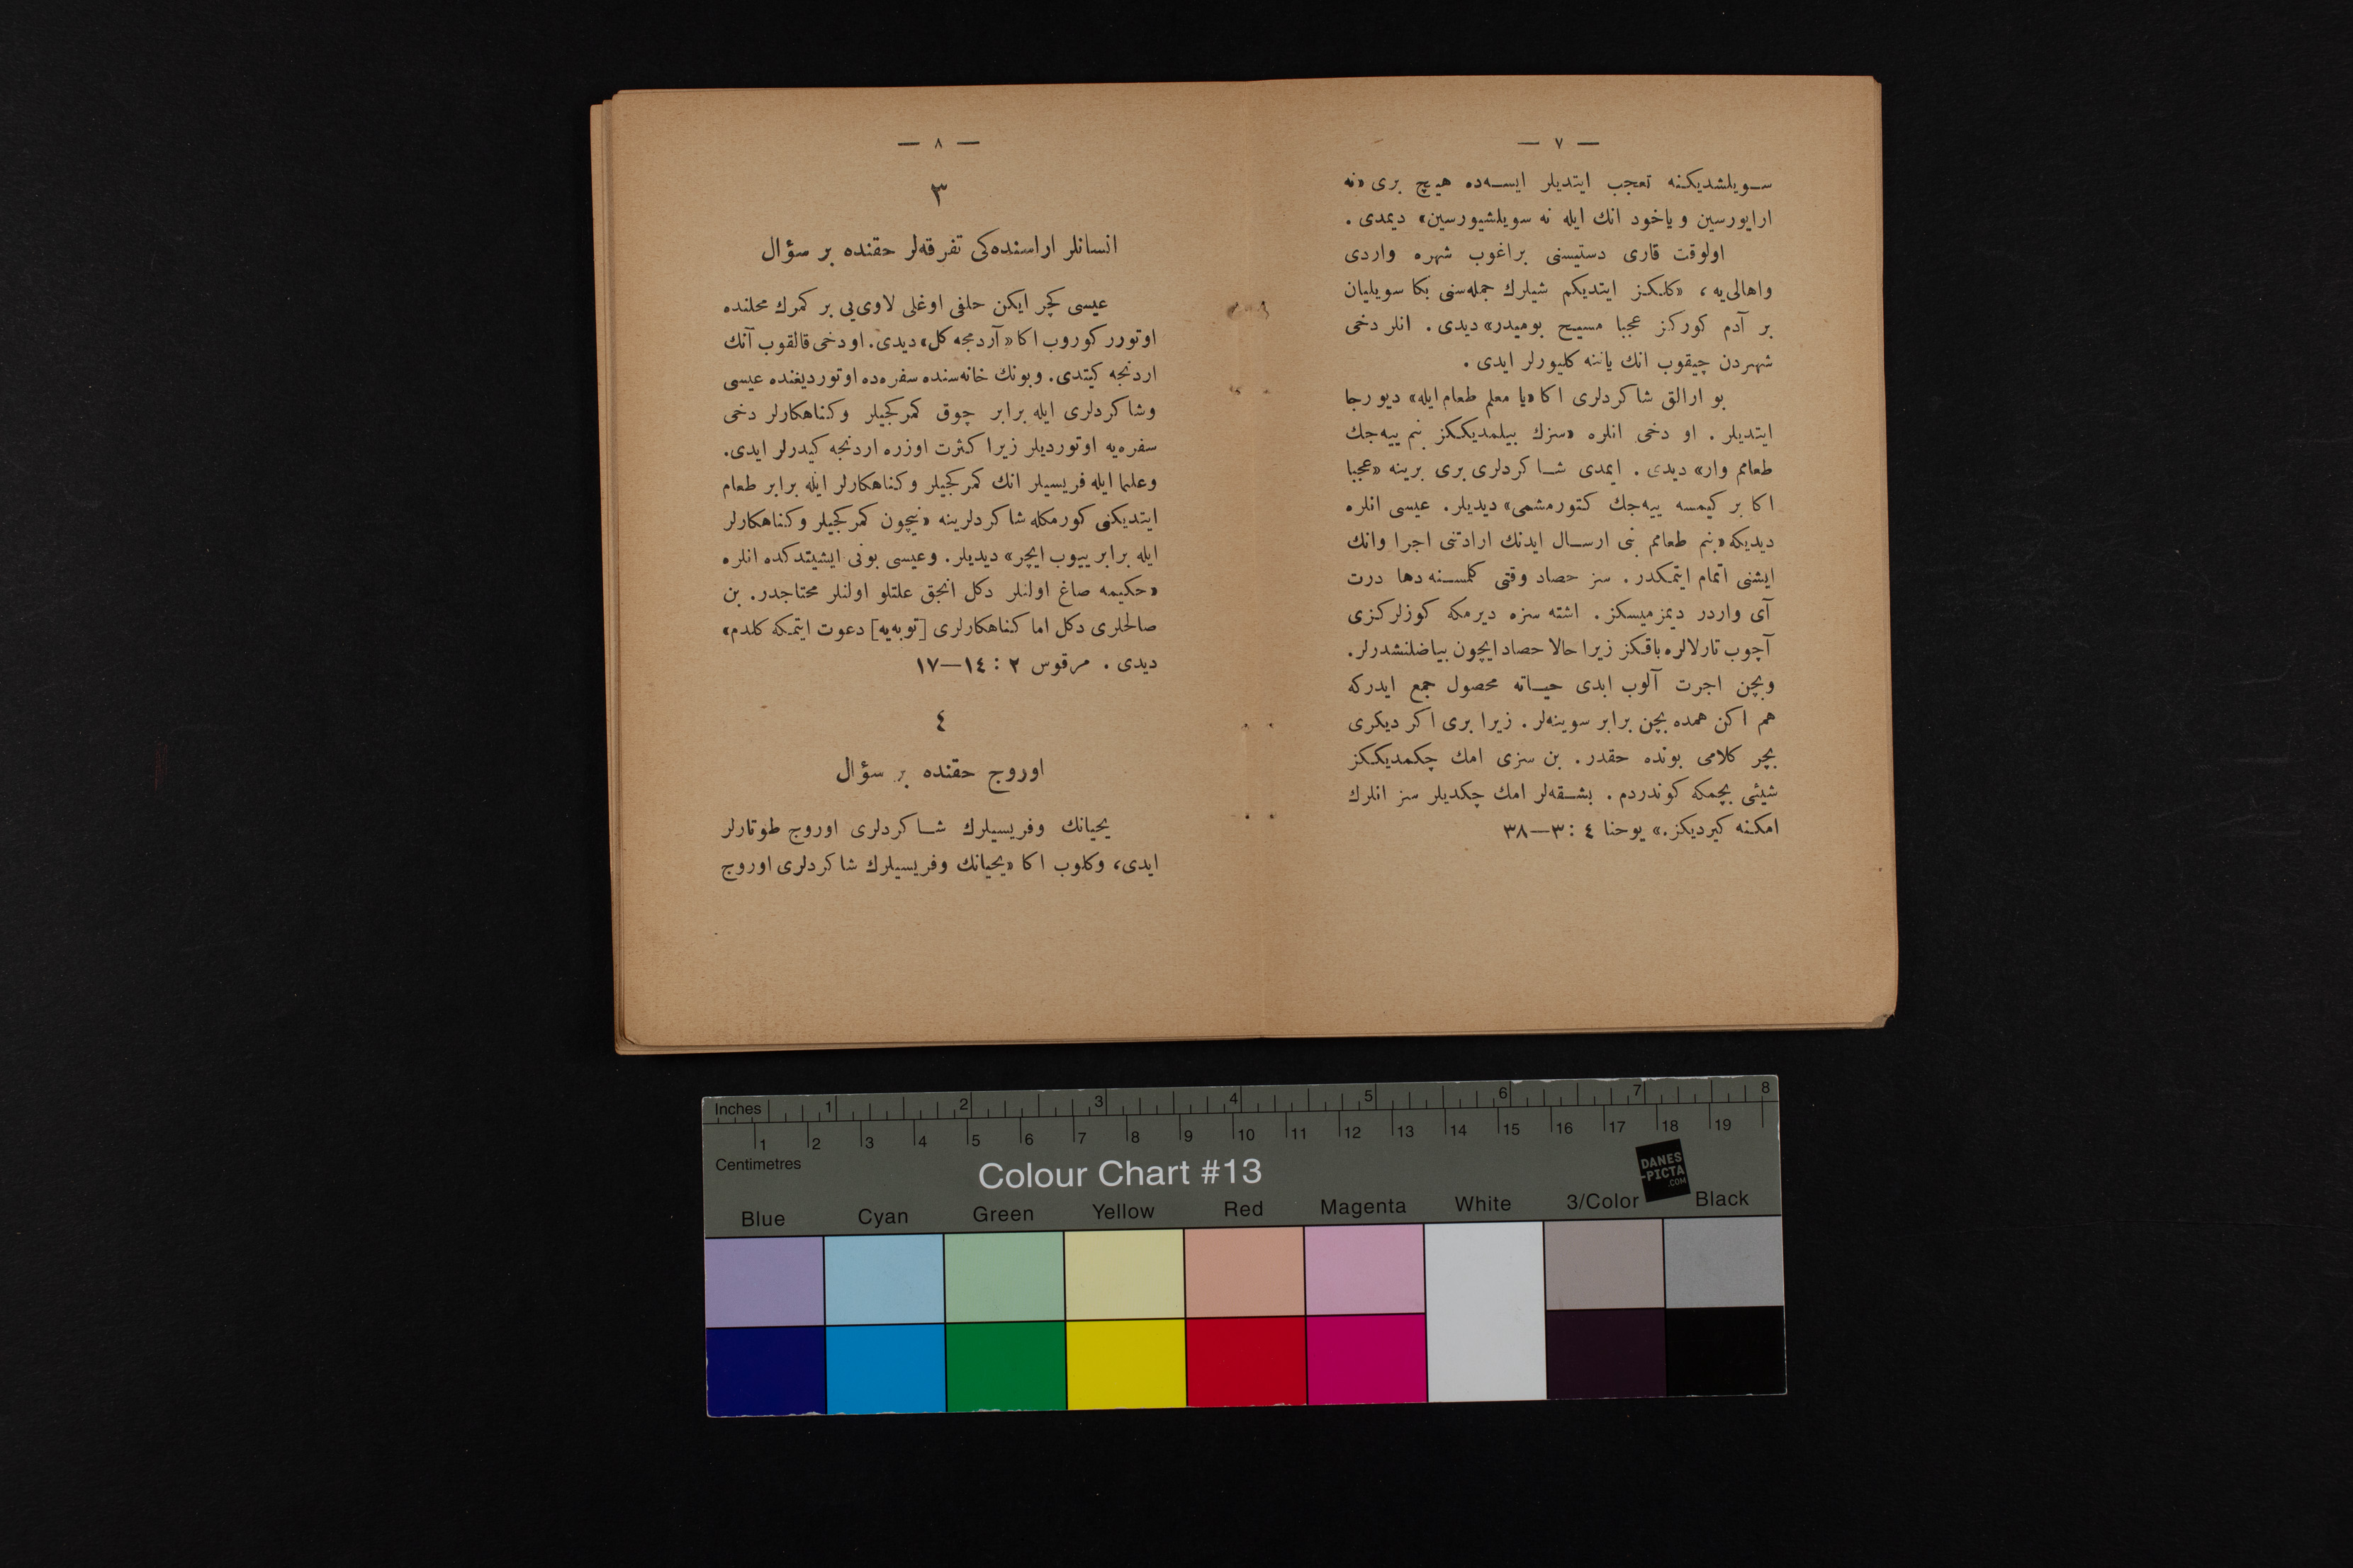 — ٧ —
سویلشدیکنه تعجب ایتدیلر ایسه‌ده هیچ بری «نه
ارایورسین و یاخود انك ایله نه سویلشیورسین» دیمدی .
اولوقت قاری دستیسنی براغوب شهره واردی
واهالی‌یه ، «کلکز ایتدیکم شیلرك جمله‌سنی بکا سویلیان
بر آدم کورکز عجبا مسیح بومیدر» دیدی . انلر دخی
شهردن چیقوب انك یاننه کلیورلر ایدی .
بو ارالق شاکردلری اکا «یا معلم طعام ایله» دیو رجا
ایتدیلر . او دخی انلره «سزك بیلمدیککز بنم ییه‌جك
طعامم وار» دیدی . ایمدی شاکردلری بری برینه «عجبا
اکا بر کیمسه ییه‌جك کتورمشمی» دیدیلر . عیسی انلره
دیدیکه «بنم طعامم بنی ارسال ایدنك ارادتنی اجرا وانك
ایشنی اتمام ایتمکدر . سز حصاد وقتی کلمسنه دها درت
آی واردر دیمزمیسکز . اشته سزه دیرمکه کوزلرکزی
آچوب تارلالره باقکز زیرا حالا حصاد ایچون بیاضلنشدرلر .
وبچن اجرت آلوب ابدی حیاته محصول جمع ایدرکه
هم اکن همده بچن برابر سوینه‌لر . زیرا بری اکر دیکری
بچر کلامی بونده حقدر . بن سزی امك چکمدیککز
شیئی بچمکه کوندردم . بشقه‌لر امك چکدیلر سز انلرك
امکنه کیردیکز .» یوحنا ٤ : ٣—٣٨
— ٨ —
٣
انسانلر اراسنده‌کی تفرقه‌لر حقنده بر سؤال
عیسی کچر ایکن حلفی اوغلی لاوی‌یی بر کمرك محلنده
اوتورر کوروب اکا «آردمجه کل» دیدی. او دخی قالقوب آنك
اردنجه کیتدی. وبونك خانه‌سنده سفره‌ده اوتوردیغنده عیسی
وشاکردلری ایله برابر چوق کمرکجیلر وکناهکارلر دخی
سفره‌یه اوتوردیلر زیرا کثرت اوزره اردنجه کیدرلر ایدی.
وعلما ایله فریسیلر انك کمرکجیلر وکناهکارلر ایله برابر طعام
ایتدیکنی کورمکله شاکردلرینه «نیچون کمرکجیلر وکناهکارلر
ایله برابر ییوب ایچر» دیدیلر. وعیسی بونی ایشیتدکده انلره
«حکیمه صاغ اولنلر دکل انجق علتلو اولنلر محتاجدر. بن
صالحلری دکل اما کناهکارلری [توبه‌یه] دعوت ایتمکه کلدم»
دیدی . مرقوس ٢ : ١٤—١٧
٤
اوروج حقنده بر سؤال
یحیانك وفریسیلرك شاکردلری اوروج طوتارلر
ایدی، وکلوب اکا «یحیانك وفریسیلرك شاکردلری اوروج
Inches 1 2 3 4 5 6 7 8
1 2 3 4 5 6 7 8 9 10 11 12 13 14 15 16 17 18 19
Centimetres
Colour Chart #13
DANES
-PICTA
.COM
Blue Cyan Green Yellow Red Magenta White 3/Color Black